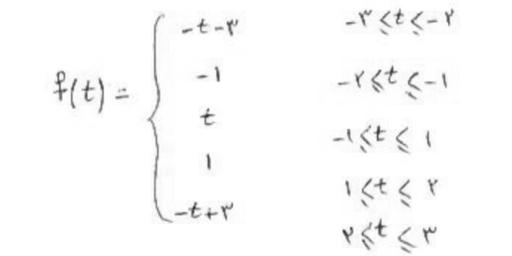 -t-۳    -۳ ≤ t ≤ -۲
-۱    -۲ ≤ t ≤ -۱
f(t) = { t    -۱ ≤ t ≤ ۱
۱    ۱ ≤ t ≤ ۲
-t+۳    ۲ ≤ t ≤ ۳